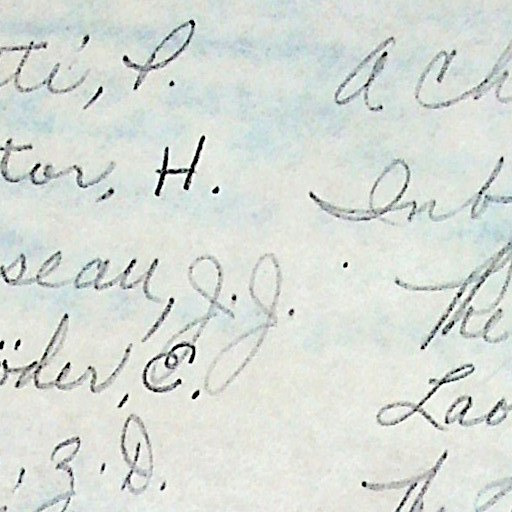 ti, P. A Ch
tor, H. Int
seau, J.J. The
öder, E. Lao
, Z.D. The